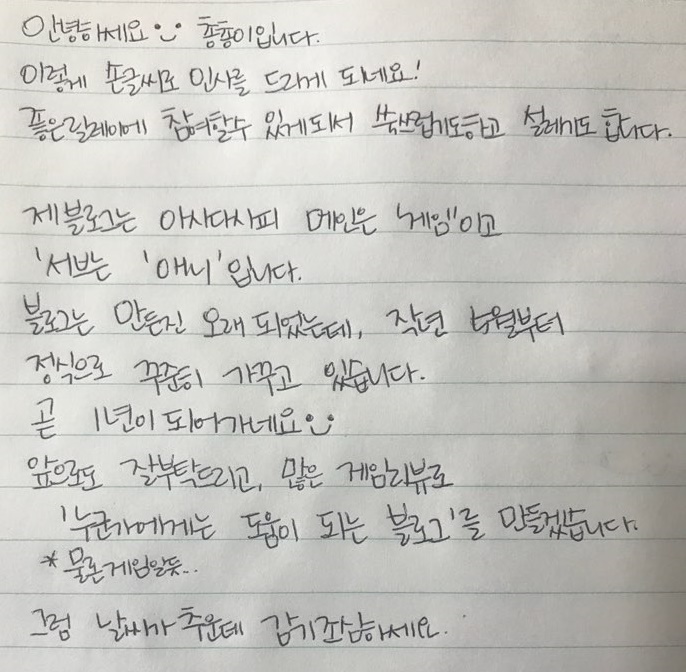 안녕하세요 총총이입니다.
이렇게 손글씨로 인사를 드리게 되네요!
좋은릴레이에 참여할수 있게되서 쑥쓰럽기도하고 설레기도 합니다.
제블로그는 아시다시피 메인은 '게임'이고
'서브'는 '애니'입니다.
블로그는 만든진 오래 되었는데, 작년 월부터
정식으로 꾸준히 가꾸고 있습니다.
곧 1년이 되어가네요
앞으로도 잘부탁드리고, 많은 게임리뷰로
'누군가에게는 도움이 되는 블로그'를 만들겠습니다.
*물론게임알못..
그럼 날씨가 추운데 감기조심하세요.